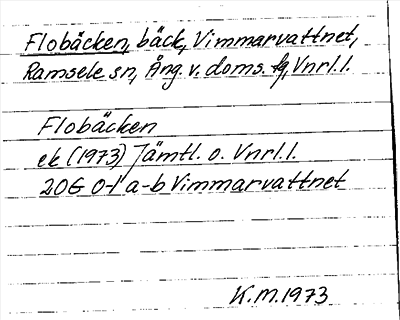 Flobäcken, bäck, Vimmarvattnet,
Ramsele sn, Ång. v. doms. fg, Vnrl. l.
Flobäcken
ek (1973) Jämtl. o. Vnrl. l.
20G 0-1 a-b Vimmarvattnet
K.M. 1973